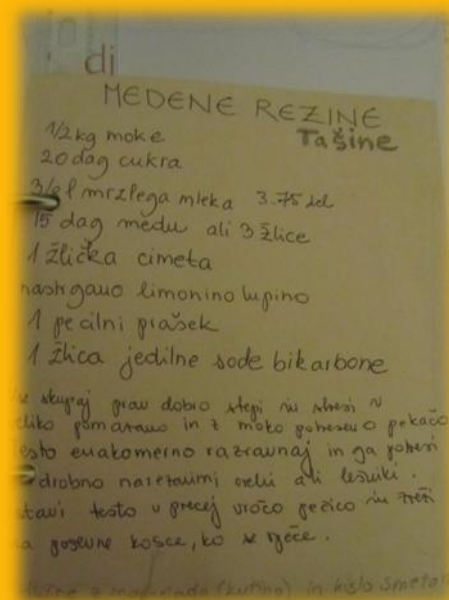 di
MEDENE REZINE
Tašine
1/2 kg moke
20 dag cukra
3/8 l mrzlega mleka 3.75 del
15 dag medu ali 3 žlice
1 žlička cimeta
nastrgano limonino lupino
1 pecilni prašek
1 žlica jedilne sode bikarbone
skupaj prav dobro stepi in stresi v
veliko pomazano in z moko potreseno pekačo
testo enakomerno razravnaj in ga potresi
drobno narezanimi orehi ali lešniki.
stavi testo v precej vročo pečico in zreži
na poševne kosce, ko se speče.
in kislo smetano